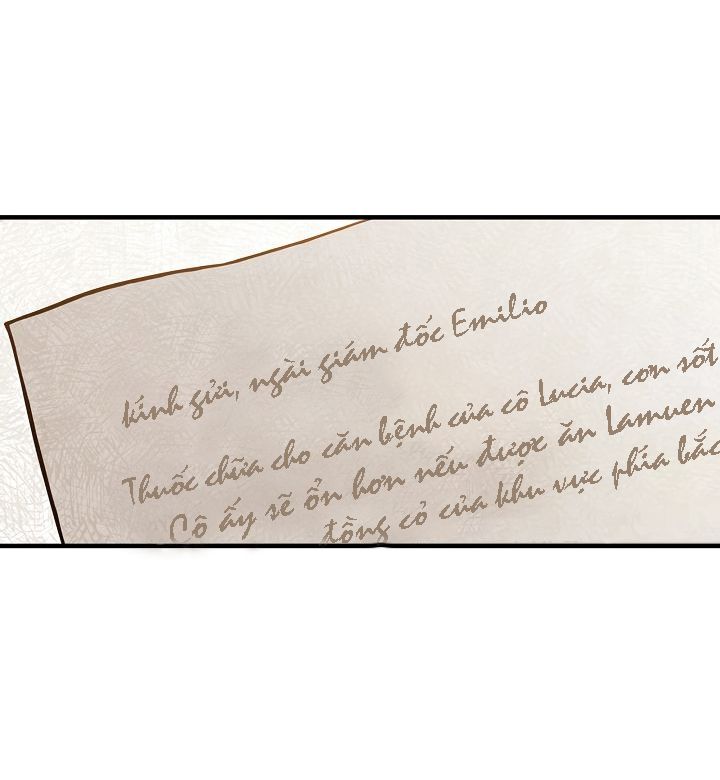 kính gửi, ngài giám đốc Emilio
Thuốc chữa cho căn bệnh của cô Lucia, cơn sốt
Cô ấy sẽ ổn hơn nếu được ăn Lamuen
đồng cỏ của khu vực phía bắc